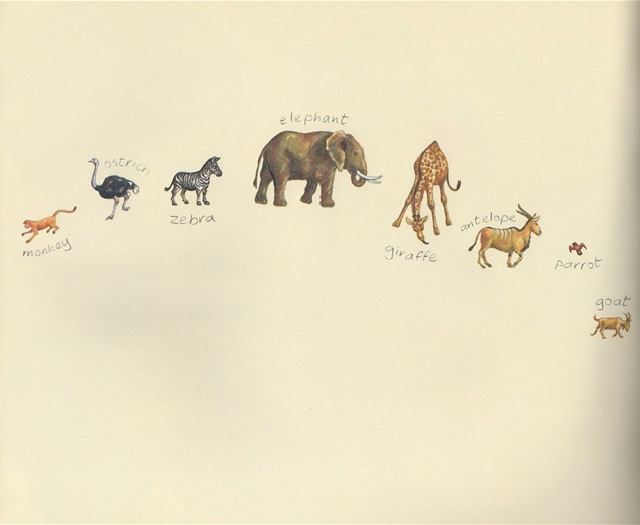 monkey
ostrich
zebra
elephant
giraffe
antelope
parrot
goat